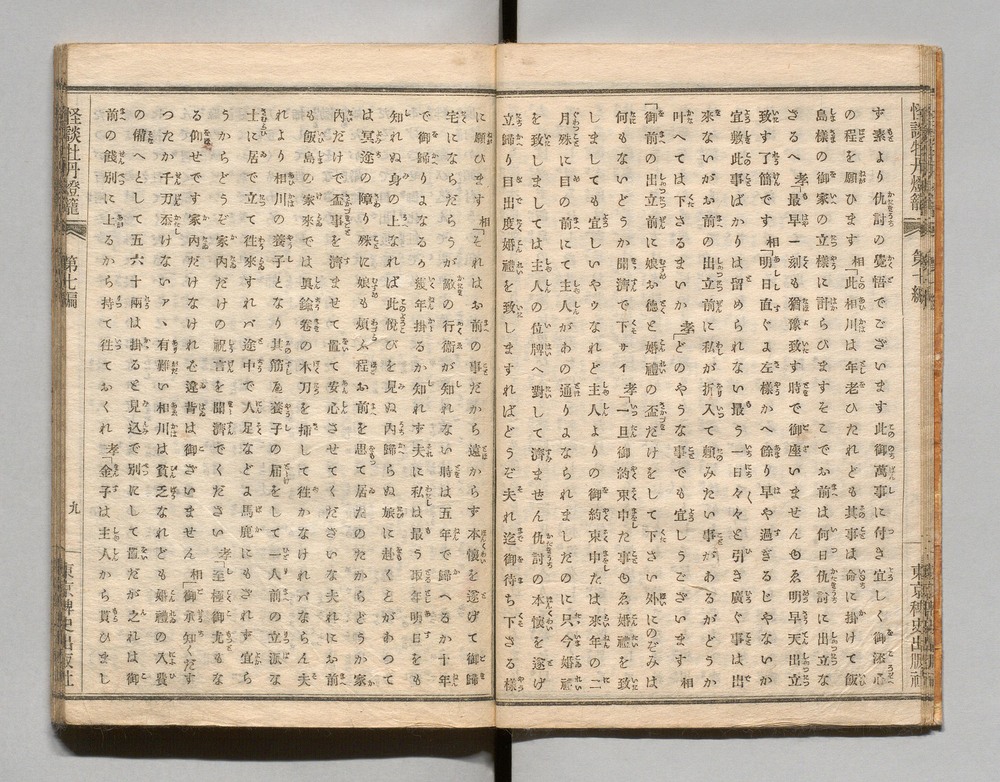 怪談牡丹燈籠
第十編
東京稗史出版社
ず素より仇討の覺悟でございます此御萬事に付き宜しく御添心
の程を願ひます 相「此相川は年老ひたれども其事は命に掛けて飯
島樣の御家の立樣に計らひますそこでお前は何日仇討に出立な
さるへ 孝「最早一刻も猶豫致す時で御座いませんもゑ明早天出立
致す了簡です 相「明日直ぐよ左樣かへ餘り早や過ぎるじやないか
宜敷此事ばかりは留められない最う一日々々と引き廣ぐ事は出
來ないがお前の出立前に私が折入て頼みたい事があるがどうか
叶へては下さるまいか 孝「どのやうな事でも宜しうございます 相
「御前の出立前に娘お德と婚禮の盃だけをして下さい外にのぞみは
何もないどうか聞濟で下サイ 孝「一旦御約束申た事もゑ婚禮を致
しましても宜しいやウなれど主人よりの御約束申たは來年の二
月殊に目の前にて主人があの通りよなられましだのに只今婚禮
を致しましては主人の位牌へ對して濟ません仇討の本懷を遂げ
立歸り目出度婚禮を致しますればどうぞ夫れ迄御待ち下さる樣
に願ひます 相「それはお前の事だから遠からず本懷を遂げて御歸
宅にならだらうが敵の行衛が知れない時は五年で歸へるか十年
で御歸りよなるか幾年掛るか知れず夫に私は最う取年明日をも
知れぬ身の上なれば此悅びを見ぬ内歸らぬ旅に赴くとがあつて
は冥途の障り殊に娘も煩ふ程お前を思て居たのたからどうか家
内だけで盃事を濟ませて置て安心させてくださいな夫れにお前
も飯島の家來では眞鍮卷の木刀を挿して徃かなけれバならん夫
れより相川の養子となり其筋え養子の屆をして一人前の立派な
士に居で立て徃來すれバ途中で人足などよ馬鹿にもされず宜か
うからどうぞ家内だけの祝言を聞濟でください 孝「至極御尤もな
る仰せです家内だけなけれバ違背は御ざいません 相「御承知くだす
つたか千万忝けないアヽ有難い相川は貧乏なれども婚禮の入費
の備へとして五六十兩は掛ると見込で別にして置だが之れは御
前の餞別に上るから持て徃ておくれ 孝「金子は主人から貰ひまし
怪談牡丹燈籠
第十編
九
東京稗史出版社